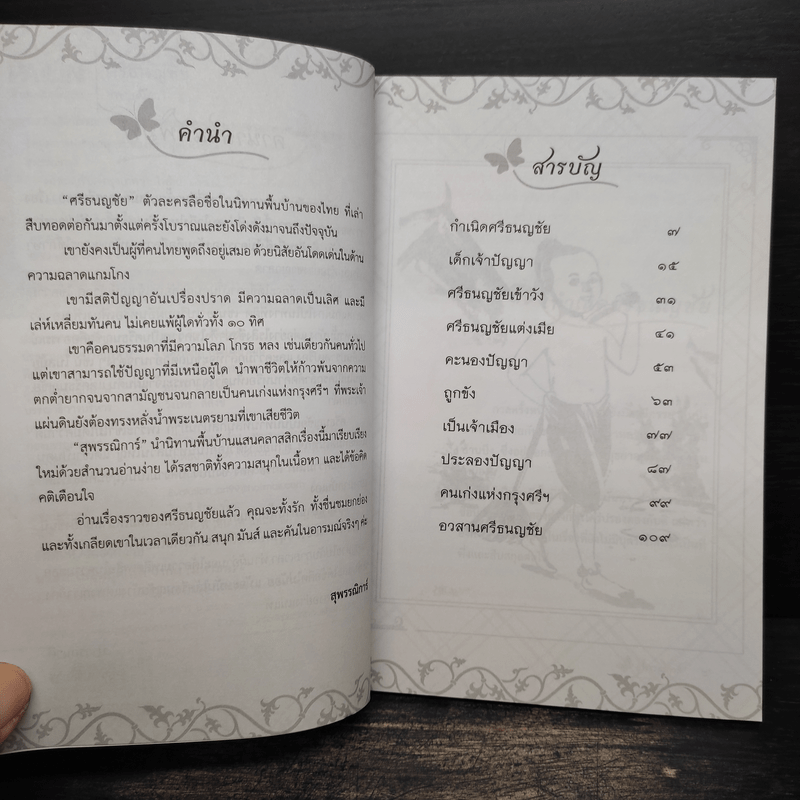 คำนำ
“ศรีธนญชัย” ตัวละครลือชื่อในนิทานพื้นบ้านของไทย ที่เล่า
สืบทอดต่อกันมาตั้งแต่ครั้งโบราณและยังโด่งดังมาจนถึงปัจจุบัน
เขายังคงเป็นผู้ที่คนไทยพูดถึงอยู่เสมอ ด้วยนิสัยอันโดดเด่นในด้าน
ความฉลาดแกมโกง
เขามีสติปัญญาอันเปรื่องปราด มีความฉลาดเป็นเลิศ และมี
เล่ห์เหลี่ยมทันคน ไม่เคยแพ้ผู้ใดทั่วทั้ง ๑๐ ทิศ
เขาคือคนธรรมดาที่มีความโลภ โกรธ หลง เช่นเดียวกับคนทั่วไป
แต่เขาสามารถใช้ปัญญาที่มีเหนือผู้ใด นำพาชีวิตให้ก้าวพ้นจากความ
ตกต่ำยากจนจากสามัญชนจนกลายเป็นคนเก่งแห่งกรุงศรีฯ ที่พระเจ้า
แผ่นดินยังต้องทรงหลั่งน้ำพระเนตรยามที่เขาเสียชีวิต
“สุพรรณิการ์” นำนิทานพื้นบ้านแสนคลาสสิกเรื่องนี้มาเรียบเรียง
ใหม่ด้วยสำนวนอ่านง่าย ได้รสชาติทั้งความสนุกในเนื้อหา และได้ข้อคิด
คติเตือนใจ
อ่านเรื่องราวของศรีธนญชัยแล้ว คุณจะทั้งรัก ทั้งชื่นชมยกย่อง
และทั้งเกลียดเขาในเวลาเดียวกัน สนุก มันส์ และคันในอารมณ์จริงๆ ค่ะ
สุพรรณิการ์
สารบัญ
กำเนิดศรีธนญชัย ๗
เด็กเจ้าปัญญา ๑๕
ศรีธนญชัยเข้าวัง ๓๑
ศรีธนญชัยแต่งเมีย ๔๑
คะนองปัญญา ๕๓
ถูกขัง ๖๓
เป็นเจ้าเมือง ๗๗
ประลองปัญญา ๘๗
คนเก่งแห่งกรุงศรีฯ ๙๙
อวสานศรีธนญชัย ๑๐๙